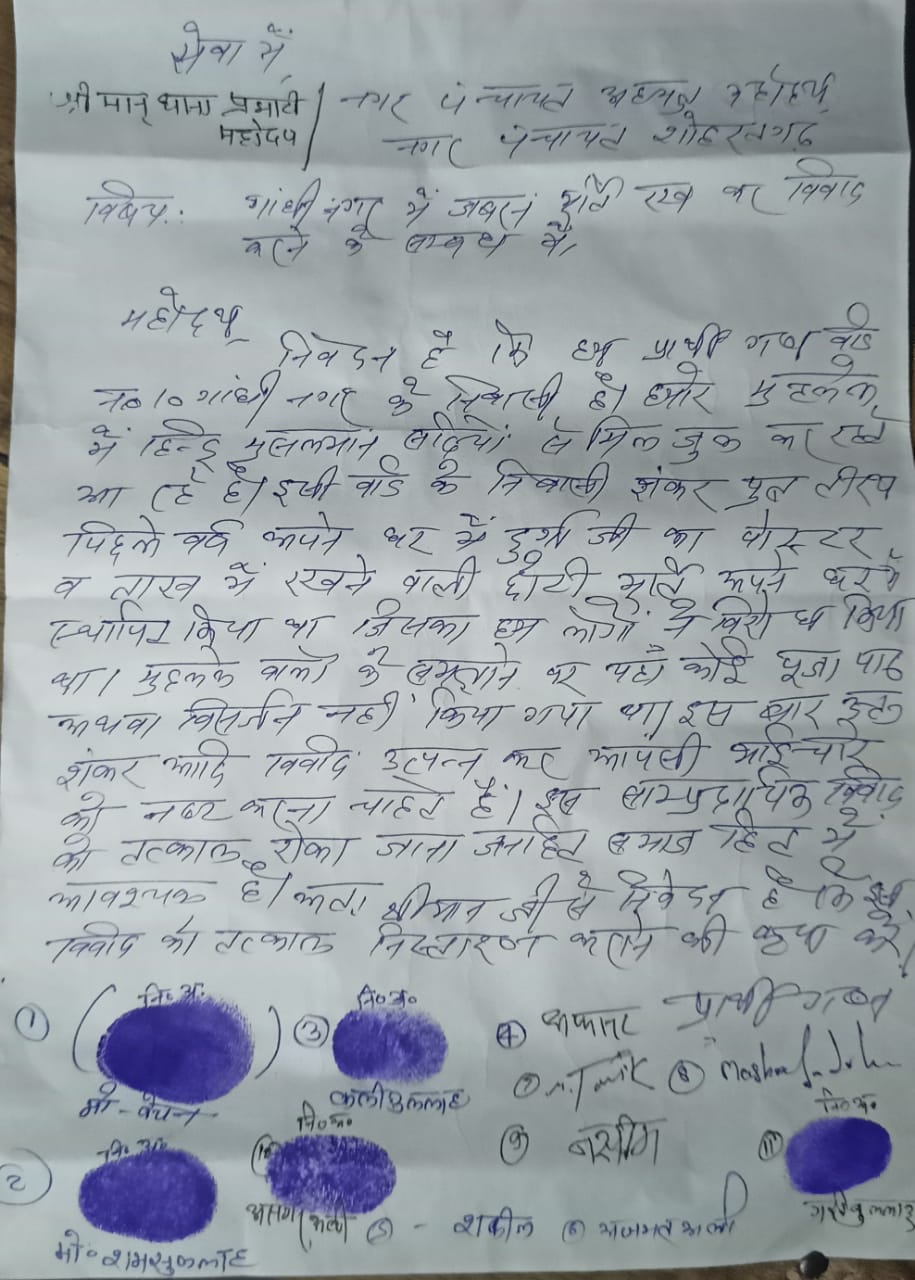 सेवा में,
श्रीमान् थाना प्रभारी / नगर पंचायत अध्यक्ष महोदय
महोदय नगर पंचायत शोहरतगढ़
विषय: गांधी नगर में जबरन मूर्ति रख कर विवाद
करने के सम्बन्ध में।
महोदय
निवेदन है कि हम प्रार्थी गण वार्ड
न० 10 गांधी नगर के निवासी है। हमारे मुहल्ले
में हिन्दू मुसलमान सदियों से मिल जुल कर रहते
आ रहे है। इसी वार्ड के निवासी शंकर पुत्र
पिछले वर्ष अपने घर में दुर्गा जी का पोस्टर
व ताख में रखने वाली छोटी मूर्ति अपने घर में
स्थापित किया था जिसका हम लोगों ने विरोध किया
था। मुहल्ले वालों के समझाने पर यहाँ कोई पूजा पाठ
अथवा विसर्जन नहीं किया गया था। इस बार
शंकर आदि विवाद उत्पन्न कर आपसी भाईचारे
को नष्ट करना चाहते हैं। इस साम्प्रदायिक विवाद
को तत्काल रोका जाना जनहित समाज हित में
आवश्यक है। अतः श्रीमान जी से निवेदन है कि इस
विवाद को तत्काल निस्तारण कराने की कृपा करें।
प्रार्थी गण
① ( नि० अ० ) ③ नि० अ० ④
मो - वेचन कलीमुल्लाह ⑦ ⑧
② नि० अ० ⑩ नि० अ० ⑨ नसीम ⑪ नि० अ०
मो० शमसुल्लाह ⑤ - शकील ⑥ अजमत अली